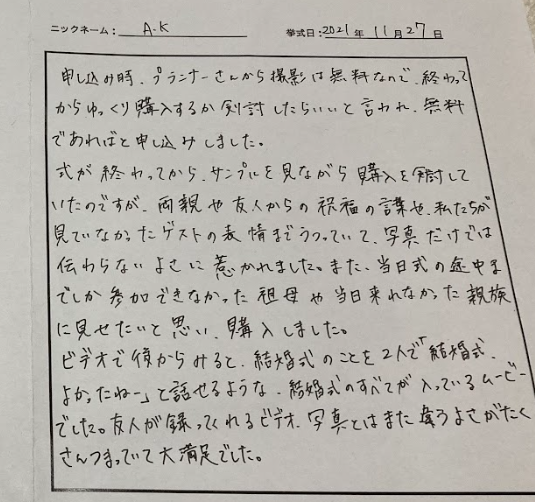 ニックネーム: A.K 挙式日: 2021年 11月 27日
申し込み時、プランナーさんから撮影は無料なので、終わって
からゆっくり購入するか検討したらいいと言われ、無料
であればと申し込みしました。
式が終わってから、サンプルを見ながら購入を検討して
いたのですが、両親や友人からの祝福の言葉や、私たちが
見ていなかったゲストの表情までうつっていて、写真だけでは
伝わらないよさに惹かれました。また、当日式の途中ま
でしか参加できなかった祖母や当日来れなかった親族
に見せたいと思い、購入しました。
ビデオで後からみると、結婚式のことを2人で「結婚式、
よかったねー」と話せるような、結婚式のすべてが入っているムービー
でした。友人が録ってくれるビデオ、写真とはまた違うよさがたく
さんつまっていて大満足でした。